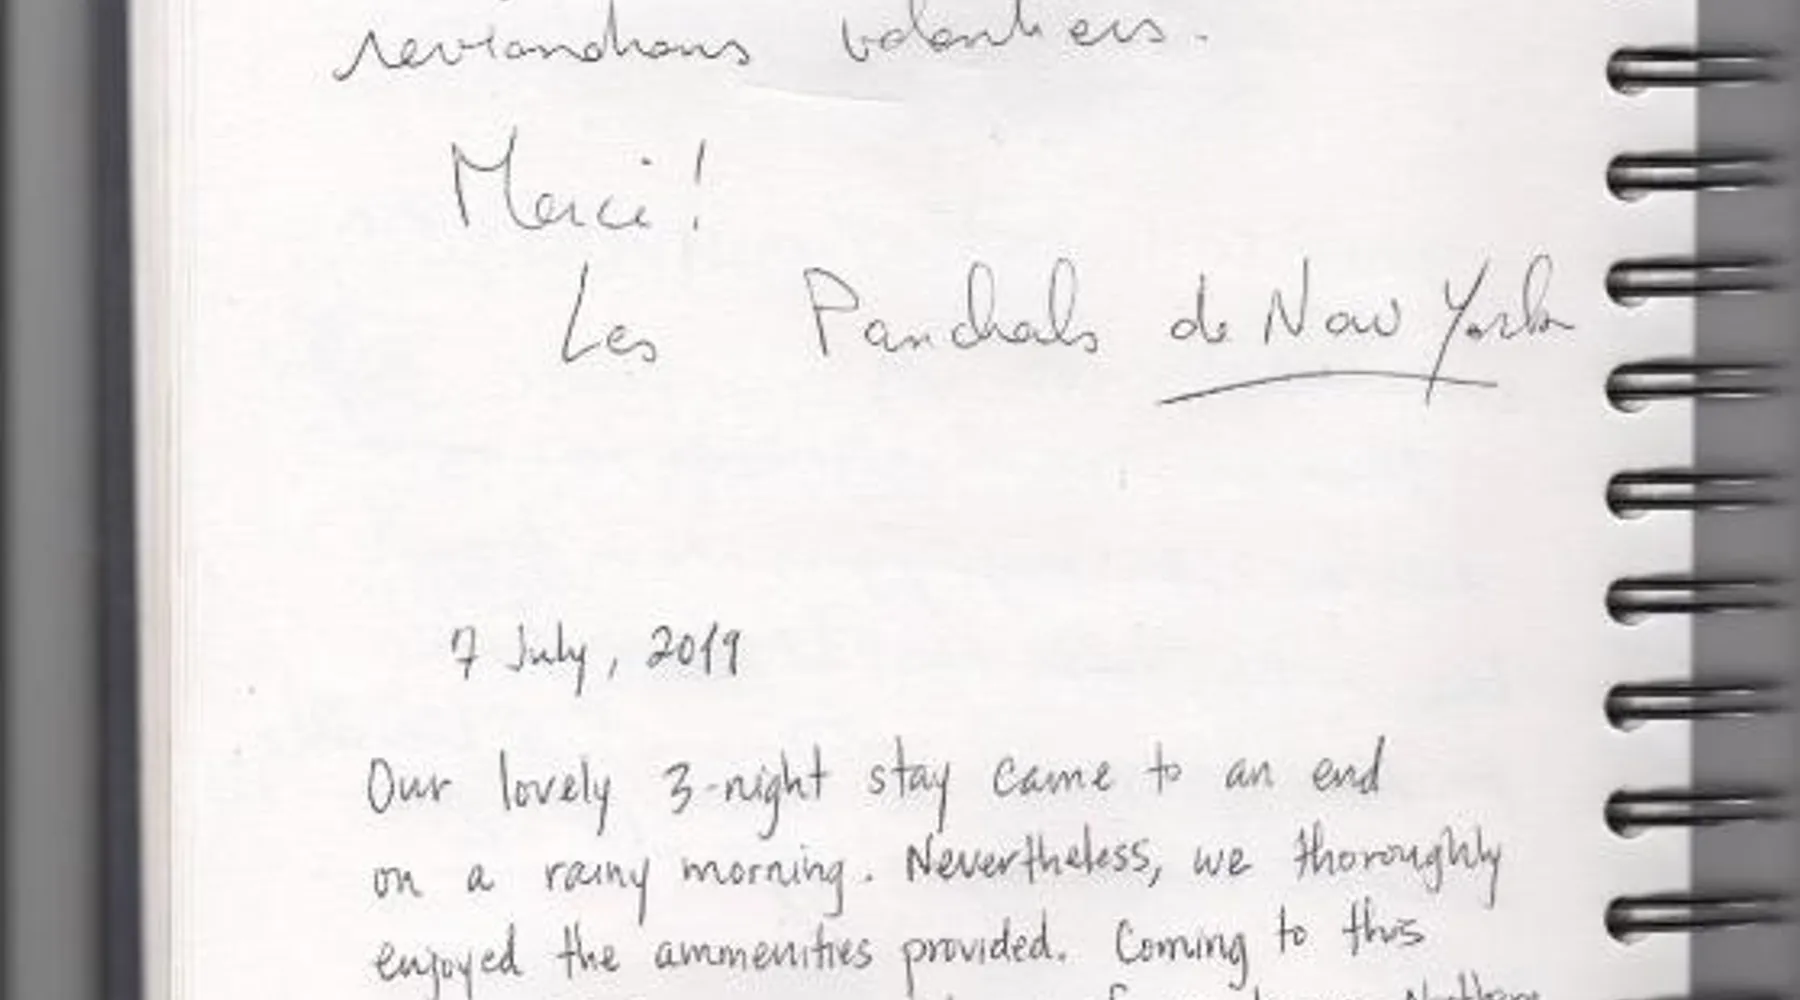 reviendrons volontiers.
Merci!
Les Panchals de New York
7 July, 2019
Our lovely 3-night stay came to an end
on a rainy morning. Nevertheless, we thoroughly
enjoyed the ammenities provided. Coming to this